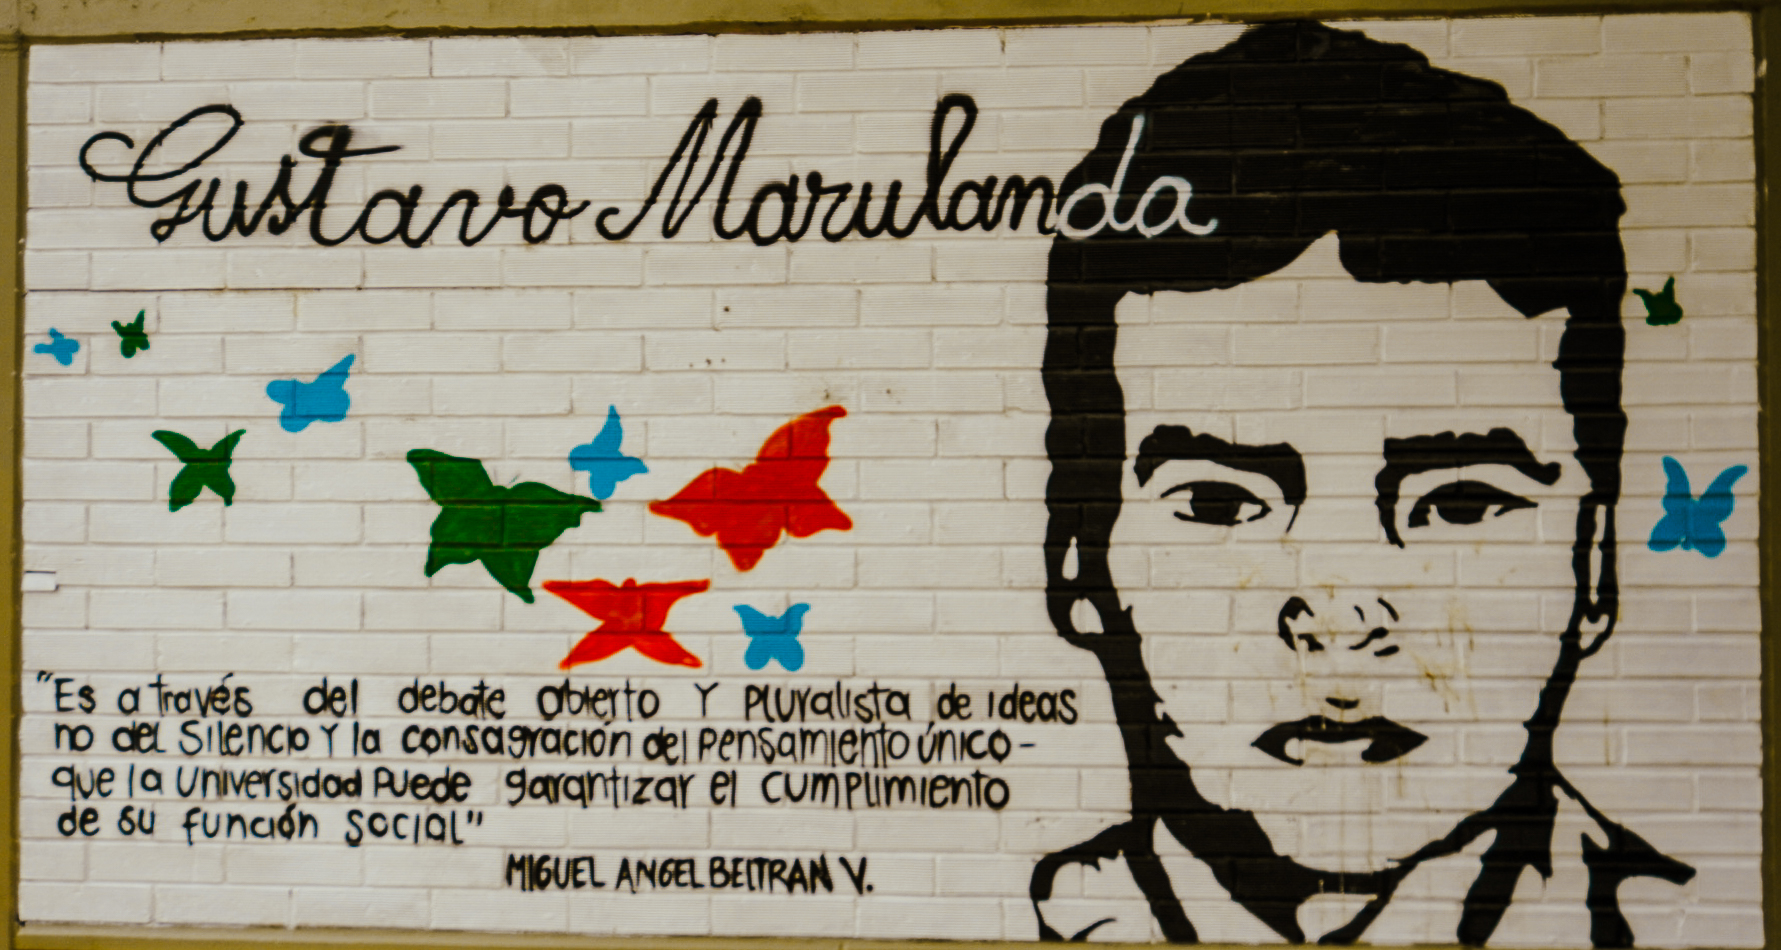 Gustavo Marulanda
"Es a través del debate abierto Y Pluralista de ideas
no del Silencio Y la consagración del Pensamiento único-
que la Universidad Puede garantizar el cumplimiento
de su función social"
MIGUEL ANGEL BELTRAN V.